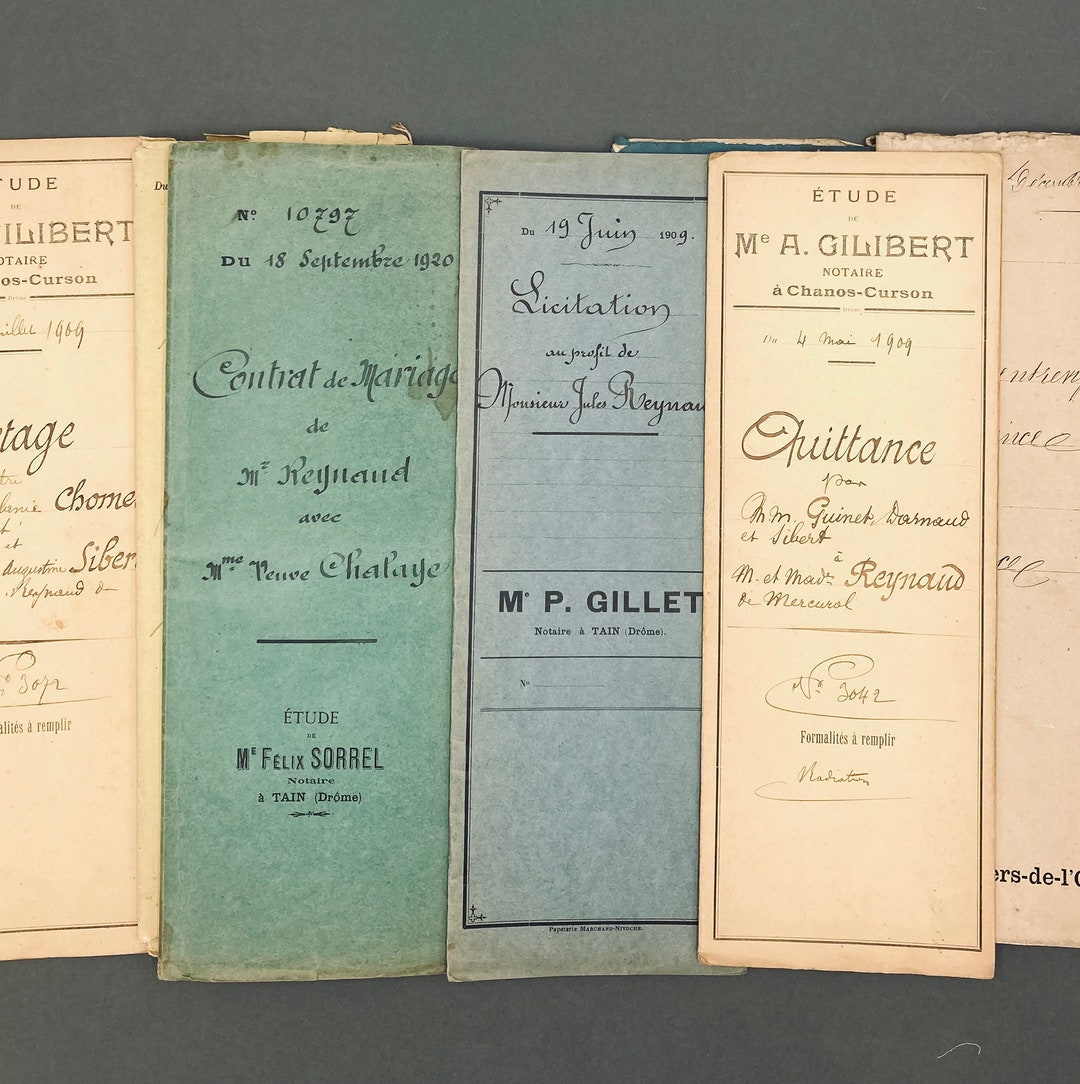 TUDE
DE
ILIBERT
OTAIRE
os-Curson
Drôme
illet 1909
tage
tre
Chome
et
Augustine Siber
Reynaud de
N° 3072
alités à remplir
Du
N° 10797
DU 18 Septembre 1920
Contrat de Mariage
de
Mr Reynaud
avec
Mme Veuve Chalaye
ÉTUDE
DE
ME FÉLIX SORREL
Notaire
à TAIN (Drôme)
Du 19 Juin 1909.
Licitation
au profit de
Monsieur Jules Reynau
Me P. GILLET
Notaire à TAIN (Drôme).
No
Papeterie MARCHAND-NIVOCHE.
ÉTUDE
DE
Me A. GILIBERT
NOTAIRE
à Chanos-Curson
Drôme
Du 4 Mai 1909
Quittance
par
Mm. Guinet, Darnaud
et Sibert
à
M. et Made Reynaud
de Mercurol
No 3042
Formalités à remplir
Radiation
Décembr
ince
ers-de-l'